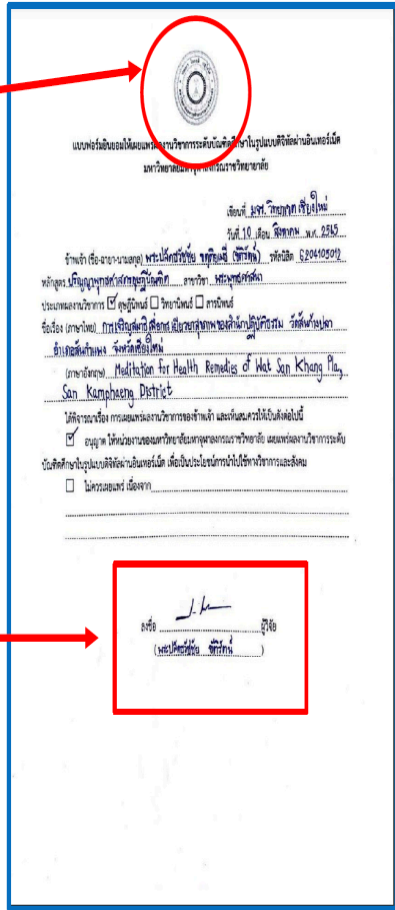 แบบฟอร์มยินยอมให้เผยแพร่ผลงานวิชาการระดับบัณฑิตศึกษาในรูปแบบดิจิทัลผ่านอินเทอร์เน็ต
มหาวิทยาลัยมหาจุฬาลงกรณราชวิทยาลัย
เขียนที่ มจร. วิทยาเขตเชียงใหม่
วันที่ 10 เดือน สิงหาคม พ.ศ. 2565
ข้าพเจ้า (ชื่อ-ฉายา-นามสกุล) รหัสนิสิต 6204105012
หลักสูตร ปริญญาพุทธศาสตรดุษฎีบัณฑิต สาขาวิชา พระพุทธศาสนา
ประเภทผลงานวิชาการ ☑ ดุษฎีนิพนธ์ ☐ วิทยานิพนธ์ ☐ สารนิพนธ์
ชื่อเรื่อง (ภาษาไทย) การเจริญสมาธิเพื่อการเยียวยาสุขภาพของสำนักปฏิบัติธรรม วัดสันก้างปลา
อำเภอสันกำแพง จังหวัดเชียงใหม่
(ภาษาอังกฤษ) Meditation for Health Remedies of Wat San Khang Pla,
San Kamphaeng District
ได้พิจารณาเรื่อง การเผยแพร่ผลงานวิชาการของข้าพเจ้า และเห็นสมควรให้เป็นดังต่อไปนี้
☑ อนุญาต ให้หน่วยงานของมหาวิทยาลัยมหาจุฬาลงกรณราชวิทยาลัย เผยแพร่ผลงานวิชาการระดับ
บัณฑิตศึกษาในรูปแบบดิจิทัลผ่านอินเทอร์เน็ต เพื่อเป็นประโยชน์การนำไปใช้ทางวิชาการและสังคม
☐ ไม่ควรเผยแพร่ เนื่องจาก
ลงชื่อ ผู้วิจัย